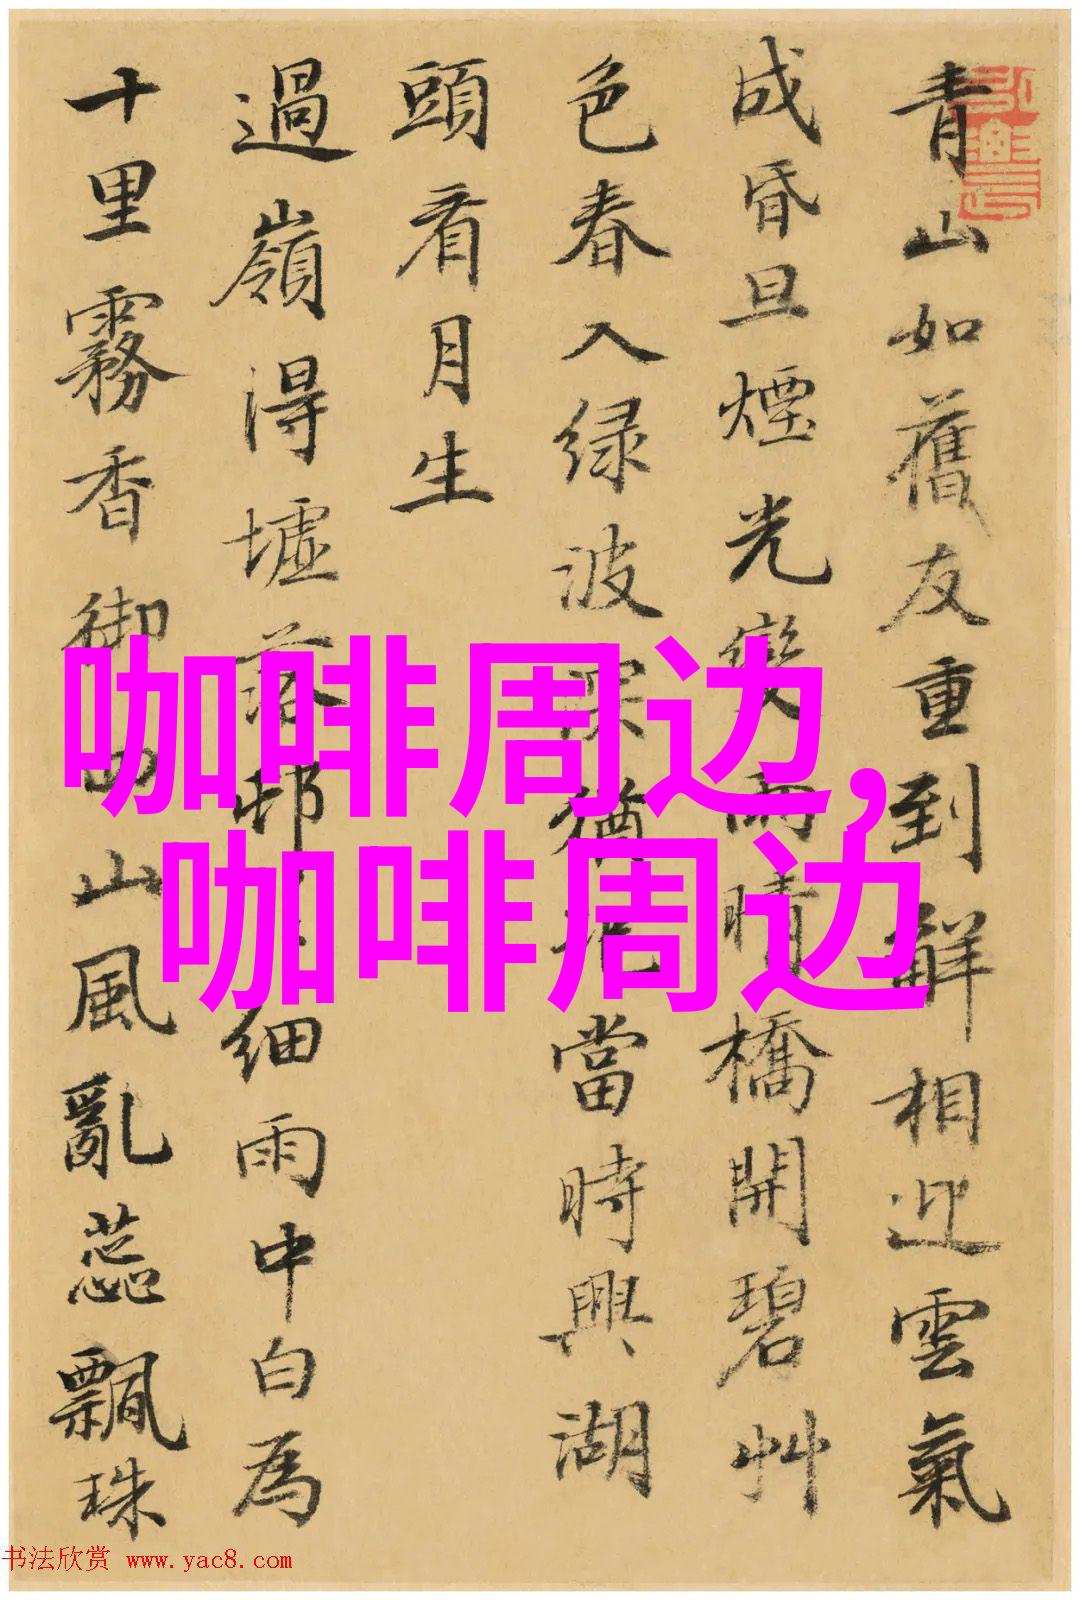 青山如舊友重到解相迎雲氣
成昏旦煙光變雨晴橋開碧艸
色春入绿波深猶記當時興湖
頭看月生
過嶺得墟落邨細雨中白為
十里霧香御四山風亂蕊飄珠
咖啡周边,
咖啡周边
书法欣赏 www.yac8.com